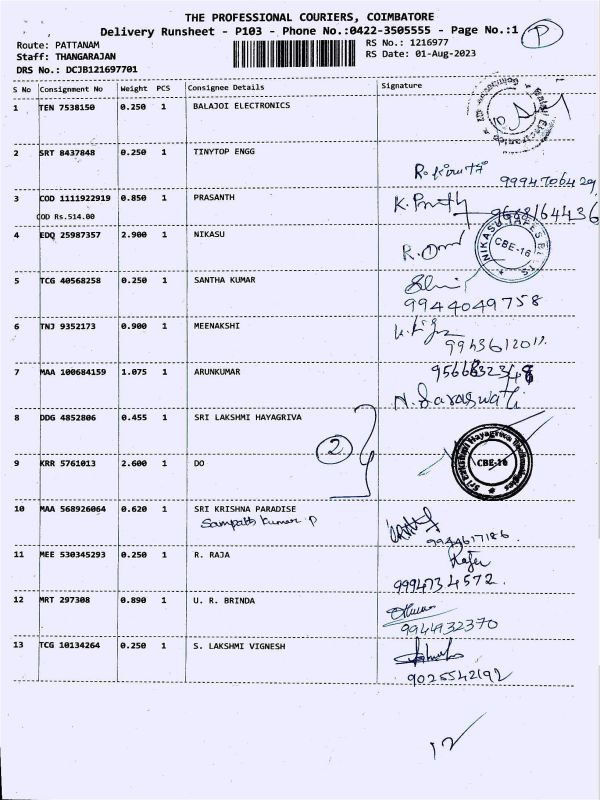 THE PROFESSIONAL COURIERS, COIMBATORE
Delivery Runsheet - P103 - Phone No.:0422-3505555 - Page No.:1 P
Route: PATTANAM RS No.: 1216977
Staff: THANGARAJAN RS Date: 01-Aug-2023
DRS No.: DCJB121697701
S No Consignment No Weight PCS Consignee Details Signature
1 TEN 7538150 0.250 1 BALAJOI ELECTRONICS
2 SRT 8437848 0.250 1 TINYTOP ENGG
9994706429
3 COD 1111922919 0.850 1 PRASANTH
COD Rs.514.00 9668164436
4 EDQ 25987357 2.900 1 NIKASU
CBE-16
5 TCG 40568258 0.250 1 SANTHA KUMAR
9944049758
6 TNJ 9352173 0.900 1 MEENAKSHI
7 MAA 100684159 1.075 1 ARUNKUMAR
N. Saraswathi
8 DDG 4852806 0.455 1 SRI LAKSHMI HAYAGRIVA
2
Sri Lakshmi Hayagriva Technologies
CBE-16
9 KRR 5761013 2.600 1 DO
10 MAA 568926064 0.620 1 SRI KRISHNA PARADISE
Sampath Kumar P
9944617186
11 MEE 530345293 0.250 1 R. RAJA
Raja
9994734572
12 MRT 297308 0.890 1 U. R. BRINDA
9944932370
13 TCG 10134264 0.250 1 S. LAKSHMI VIGNESH
9025542192
12